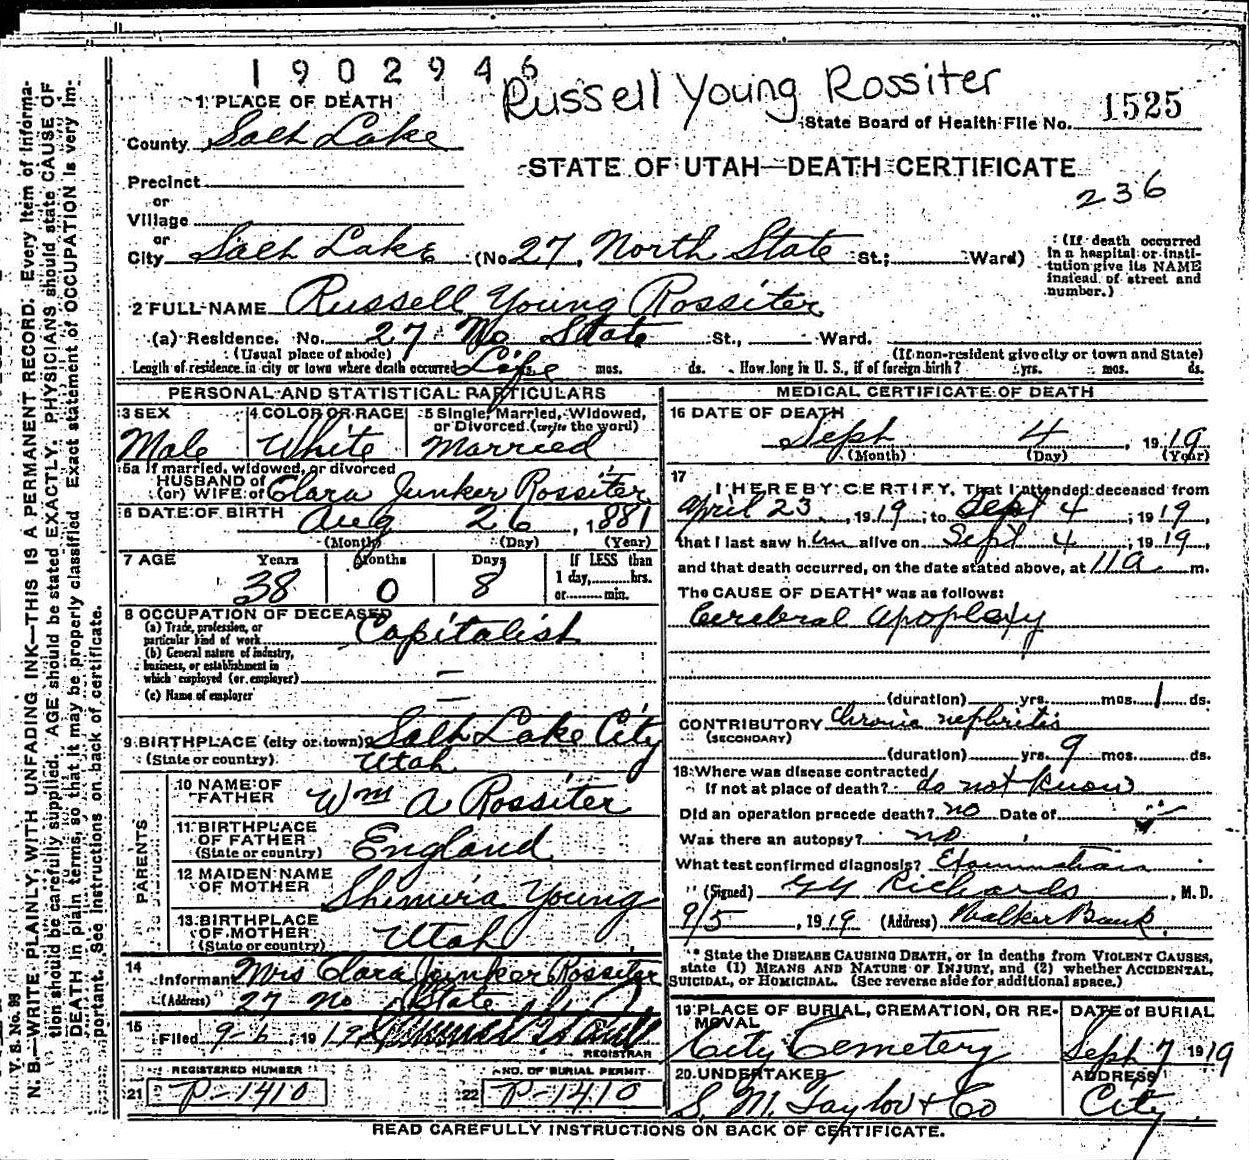 1902946
Russell Young Rossiter
1 PLACE OF DEATH
State Board of Health File No. 1525
County Salt Lake
STATE OF UTAH—DEATH CERTIFICATE
236
Precinct
or
Village
or
City Salt Lake (No. 27, North State St.; Ward)
(If death occurred in a hospital or institution give its NAME instead of street and number.)
2 FULL NAME Russell Young Rossiter
(a) Residence. No. 27 No State St., Ward.
(Usual place of abode) (If non-resident give city or town and State)
Length of residence in city or town where death occurred Life mos. ds. How long in U. S., if of foreign birth? yrs. mos. ds.
PERSONAL AND STATISTICAL PARTICULARS
3 SEX Male
4 COLOR OR RACE White
5 Single, Married, Widowed, or Divorced (write the word) Married
5a If married, widowed, or divorced
HUSBAND of
(or) WIFE of Clara Junker Rossiter
6 DATE OF BIRTH Aug 26, 1881
(Month) (Day) (Year)
7 AGE Years 38 Months 0 Days 8 If LESS than 1 day, hrs. or min.
8 OCCUPATION OF DECEASED
(a) Trade, profession, or particular kind of work Capitalist
(b) General nature of industry, business, or establishment in which employed (or employer) —
(c) Name of employer —
9 BIRTHPLACE (city or town) Salt Lake City
(State or country) Utah
PARENTS
10 NAME OF FATHER Wm A Rossiter
11 BIRTHPLACE OF FATHER (State or country) England
12 MAIDEN NAME OF MOTHER Shemira Young
13 BIRTHPLACE OF MOTHER (State or country) Utah
14 Informant Mrs Clara Junker Rossiter
(Address) 27 No State
15 Filed 9-6, 1919
REGISTRAR
REGISTERED NUMBER
21 P-1410
NO. OF BURIAL PERMIT
22 P-1410
MEDICAL CERTIFICATE OF DEATH
16 DATE OF DEATH
Sept 4, 1919
(Month) (Day) (Year)
17 I HEREBY CERTIFY, That I attended deceased from
April 23, 1919; to Sept 4, 1919,
that I last saw him alive on Sept 4, 1919,
and that death occurred, on the date stated above, at 11 a m.
The CAUSE OF DEATH* was as follows:
Cerebral Apoplexy
(duration) yrs. mos. 1 ds.
CONTRIBUTORY Chronic nephritis
(SECONDARY)
(duration) yrs. 9 mos. ds.
18 Where was disease contracted
If not at place of death? do not know
Did an operation precede death? no Date of
Was there an autopsy? no
What test confirmed diagnosis? Examination
(Signed) G G Richards, M. D.
9/5, 1919 (Address) Walker Bank
* State the DISEASE CAUSING DEATH, or in deaths from VIOLENT CAUSES,
state (1) MEANS AND NATURE OF INJURY, and (2) whether ACCIDENTAL,
SUICIDAL, or HOMICIDAL. (See reverse side for additional space.)
19 PLACE OF BURIAL, CREMATION, OR REMOVAL City Cemetery
DATE of BURIAL Sept 7 1919
20 UNDERTAKER S. M. Taylor & Co
ADDRESS City
READ CAREFULLY INSTRUCTIONS ON BACK OF CERTIFICATE.
V. S. No. 98
N. B.—WRITE PLAINLY, WITH UNFADING INK—THIS IS A PERMANENT RECORD. Every item of information should be carefully supplied. AGE should be stated EXACTLY. PHYSICIANS should state CAUSE OF DEATH in plain terms, so that it may be properly classified. Exact statement of OCCUPATION is very important. See instructions on back of certificate.